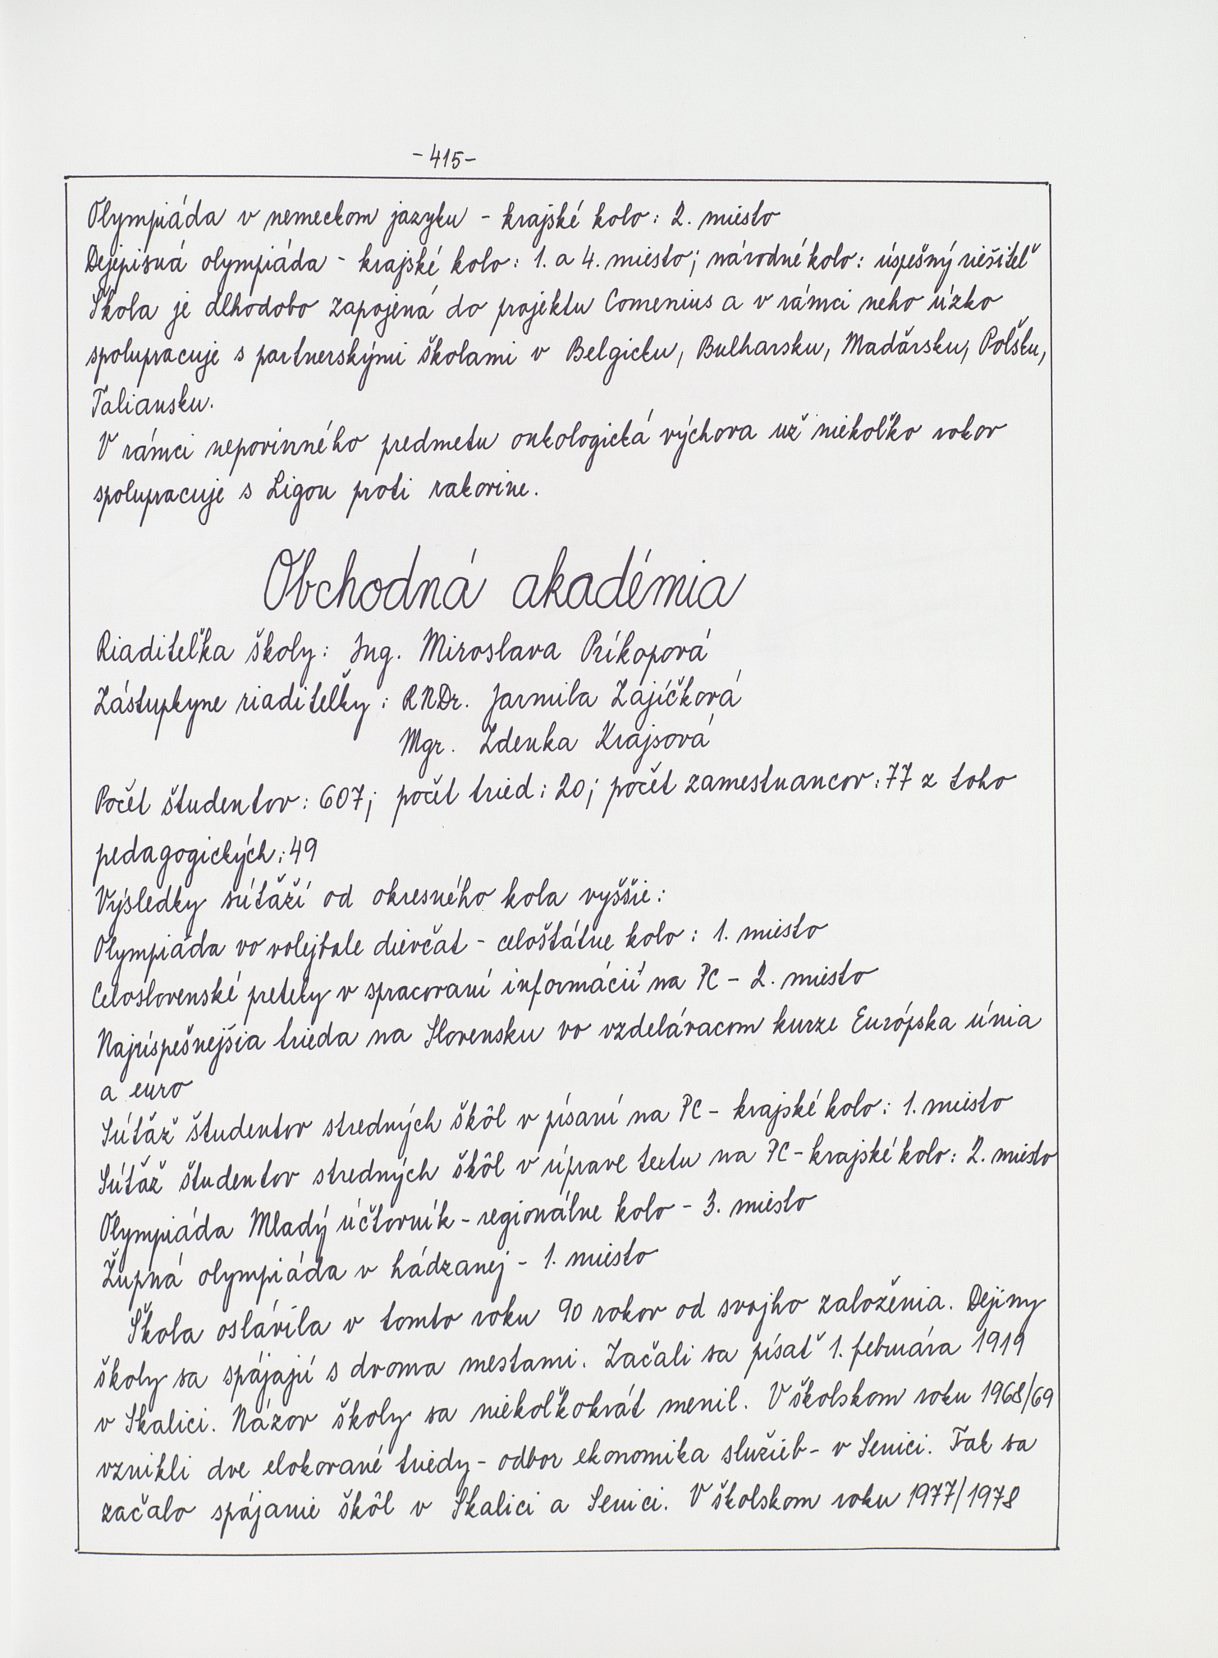 -415-
Olympiáda v nemeckom jazyku - krajské kolo: 2. miesto
Dejepisná olympiáda - krajské kolo: 1. a 4. miesto; národné kolo: úspešný riešiteľ
Škola je dlhodobo zapojená do projektu Comenius a v rámci neho úzko
spolupracuje s partnerskými školami v Belgicku, Bulharsku, Maďarsku, Poľsku,
Taliansku.
V rámci nepovinného predmetu onkologická výchova už niekoľko rokov
spolupracuje s Ligou proti rakovine.
Obchodná akadémia
Riaditeľka školy: Ing. Miroslava Príkopová
Zástupkyne riaditeľky: RNDr. Jarmila Zajíčková
Mgr. Zdenka Krajsová
Počet študentov: 607; počet tried: 20; počet zamestnancov: 77 z toho
pedagogických: 49
Výsledky súťaží od okresného kola vyššie:
Olympiáda vo volejbale dievčat - celoštátne kolo: 1. miesto
Celoslovenské preteky v spracovaní informácií na PC - 2. miesto
Najúspešnejšia trieda na Slovensku vo vzdelávacom kurze Európska únia
a euro
Súťaž študentov stredných škôl v písaní na PC - krajské kolo: 1. miesto
Súťaž študentov stredných škôl v úprave textu na PC - krajské kolo: 2. miesto
Olympiáda Mladý účtovník - regionálne kolo - 3. miesto
Župná olympiáda v hádzanej - 1. miesto
Škola oslávila v tomto roku 90 rokov od svojho založenia. Dejiny
školy sa spájajú s dvoma mestami. Začali sa písať 1. februára 1919
v Skalici. Názov školy sa niekoľkokrát menil. V školskom roku 1968/69
vznikli dve elokované triedy - odbor ekonomika služieb - v Senici. Tak sa
začalo spájanie škôl v Skalici a Senici. V školskom roku 1977/1978